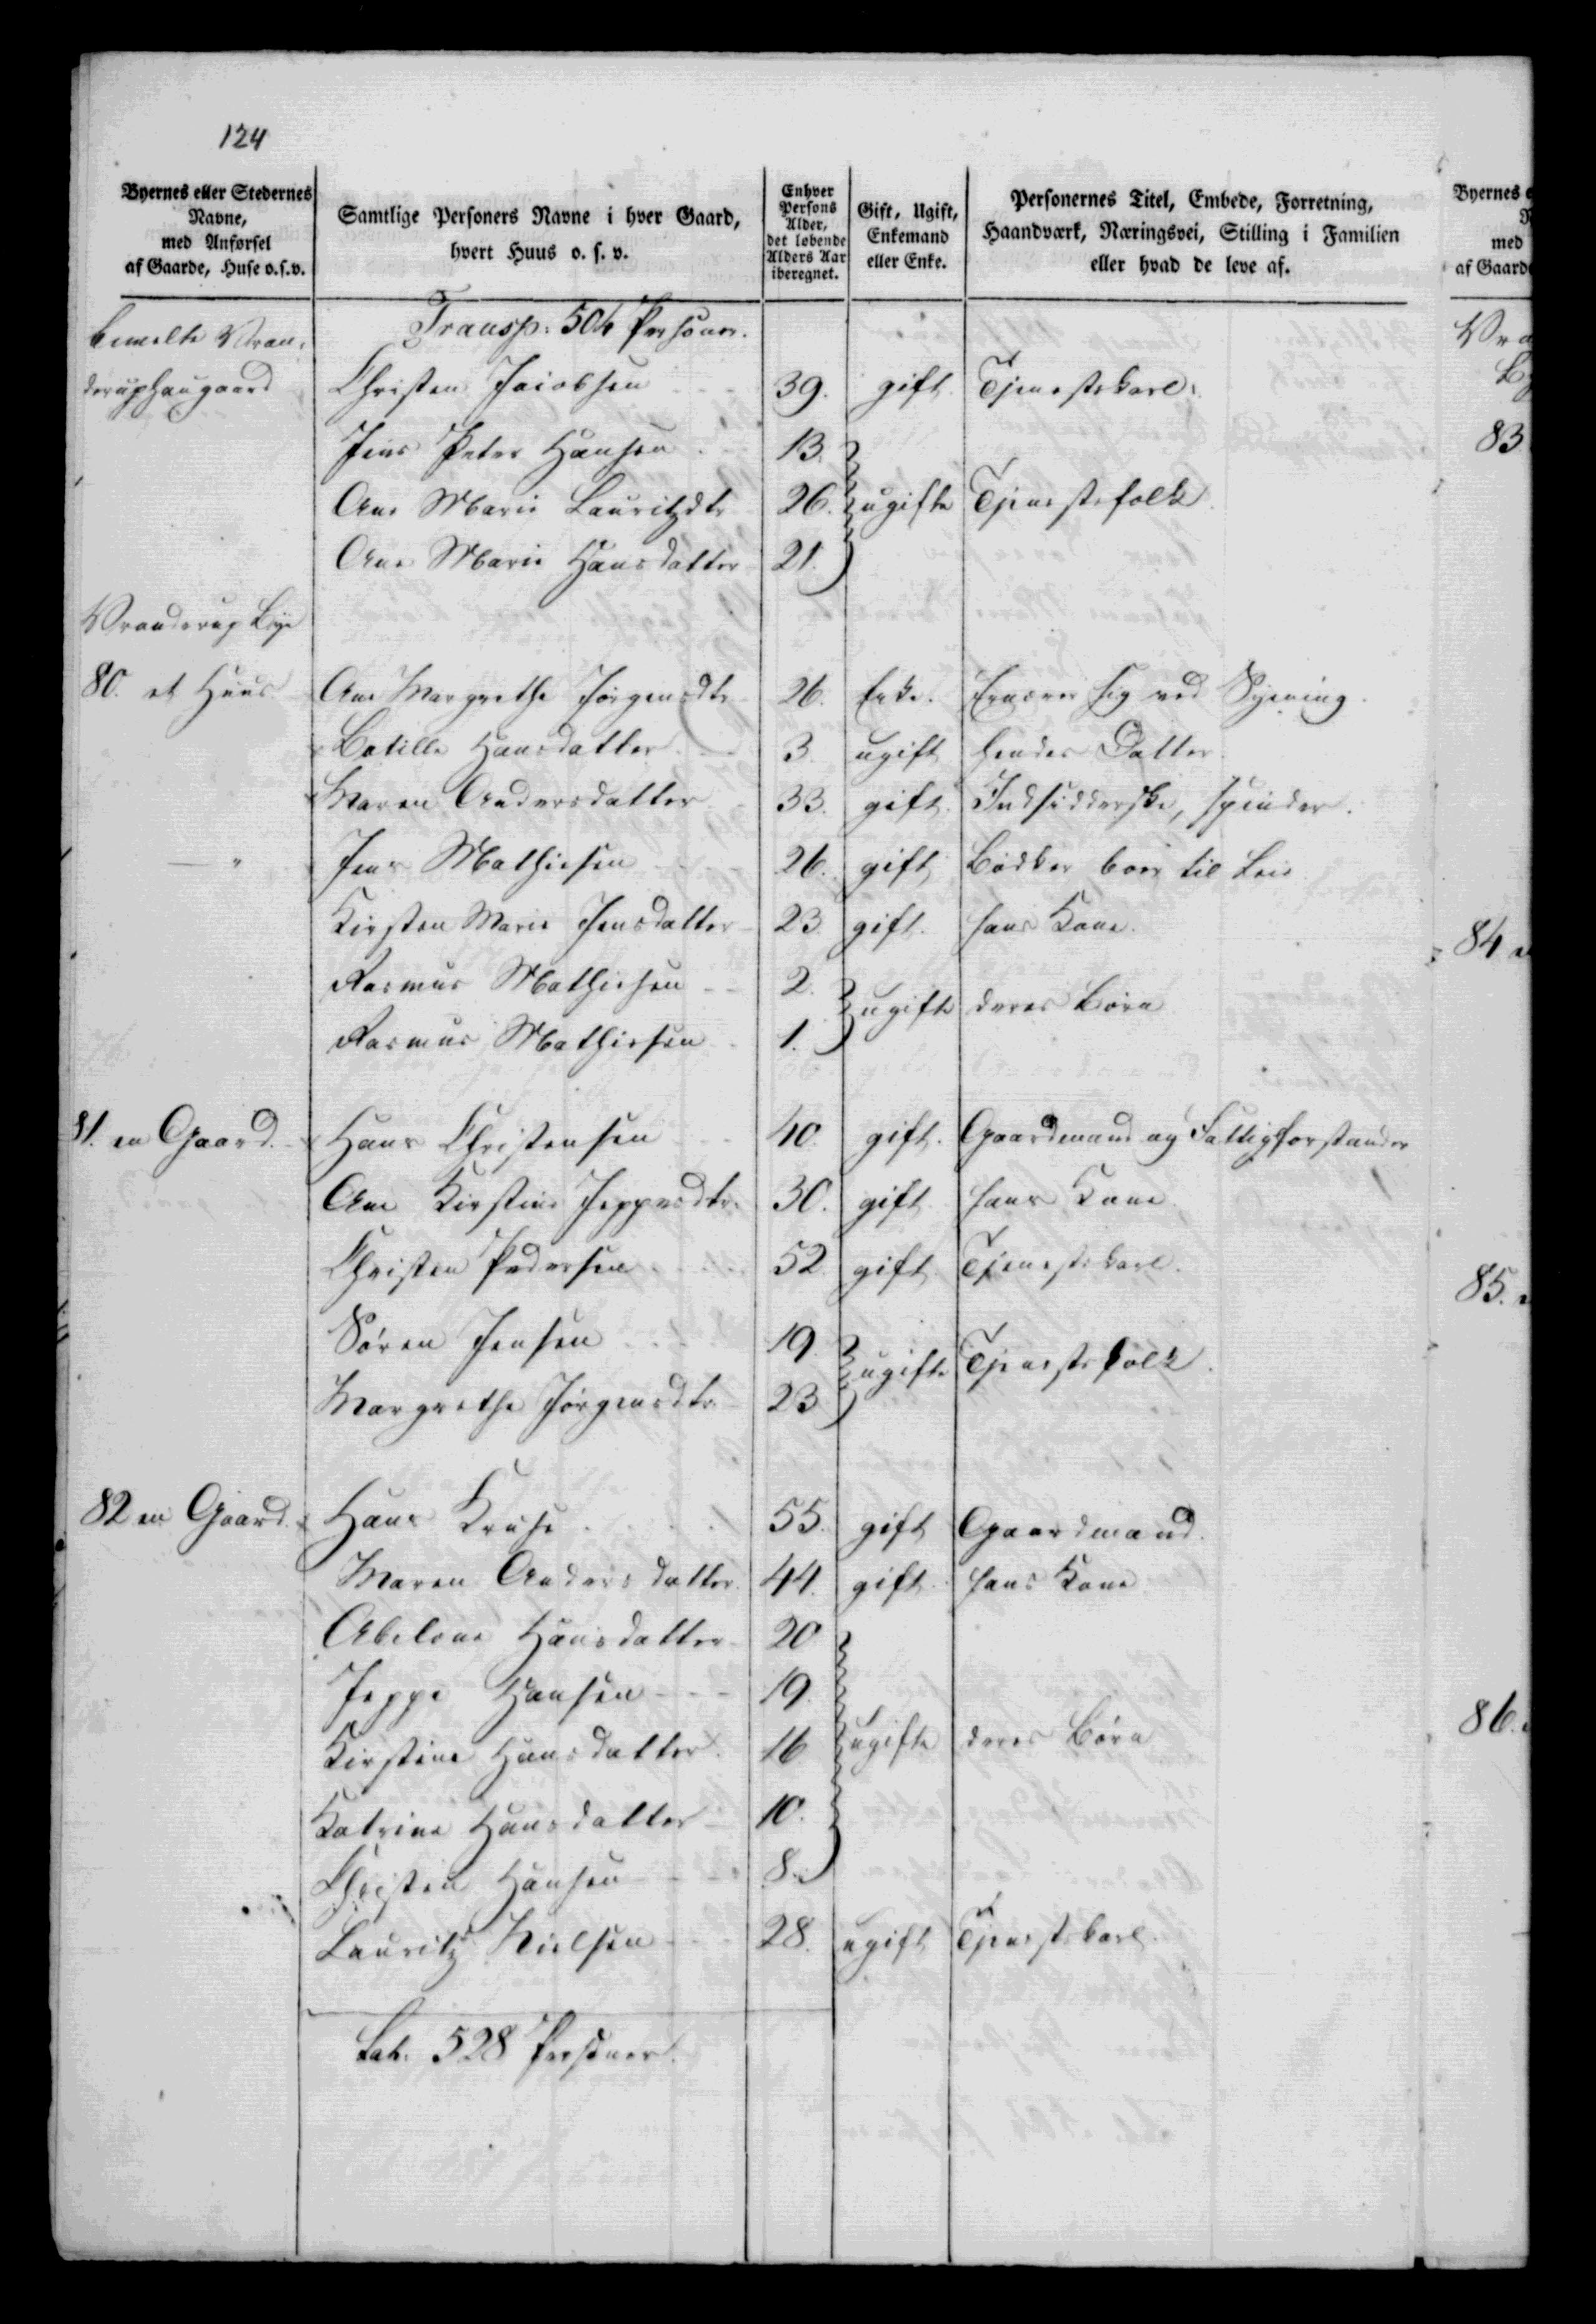 124
Byernes eller Stedernes Navne, med Anførsel af Gaarde, Huse o.s.v. | Samtlige Personers Navne i hver Gaard, hvert Huus o. s. v. | Enhver Persons Alder, det løbende Alders Aar iberegnet. | Gift, Ugift, Enkemand eller Enke. | Personernes Titel, Embede, Forretning, Haandværk, Næringsvei, Stilling i Familien eller hvad de leve af.
bemelte Vran- Transp: 504 Personer.
deruphaugaard Christen Jacobsen 39. gift Tjenestekarl.
Jens Peter Hansen 13.
Ane Marie Lauritzdtr 26. ugifte Tjenestefolk
Ane Marie Hansdatter 21.
Vranderup Bye
80. et Huus Ane Margrethe Jørgensdtr 26. Enke. Ernærer sig ved Syening.
Botille Hansdatter 3. ugift hendes Datter.
Maren Andersdatter 33. gift. Indsidderske, spinder.
— " Jens Mathiesen 26. gift Bødker boer til Leie
Kirsten Marie Jensdatter 23. gift. hans Kone.
Rasmus Mathiesen 2.
ugifte deres Børn
Rasmus Mathiesen 1.
81. en Gaard. Hans Christensen 40. gift. Gaardmand og Fattigforstander
Ane Kirstine Jeppesdtr. 30. gift hans Kone
Christen Pedersen 52. gift Tjenestekarl.
Søren Jensen 19.
ugifte Tjenestefolk.
Margrethe Jørgensdtr. 23.
82 en Gaard. Hans Kruse 55. gift Gaardmand.
Maren Andersdatter. 44. gift. hans Kone
Abelone Hansdatter 20
Jeppe Hansen 19.
Kirstine Hansdatter. 16 ugifte deres Børn
Katrine Hansdatter 10.
Christen Hansen 8.
Lauritz Nielsen 28. ugift Tjenestekarl.
Lat. 528 Personer.
Byernes e
N
med
af Gaarde
Vra
By
83
84 e
85. e
86. e